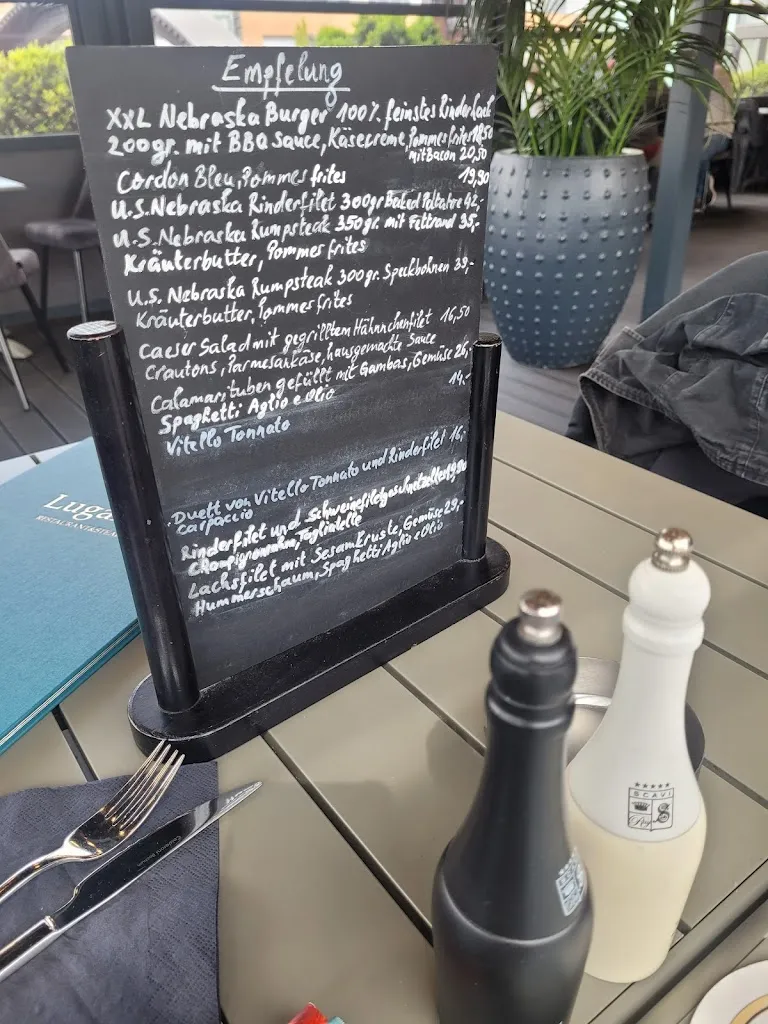 Empfelung
XXL Nebraska Burger 100% feinstes Rinderhack
200gr. mit BBQ Sauce, Käsecreme, Pommes frites 18,50
mit Bacon 20,50
Cordon Bleu, Pommes frites 19,90
U.S. Nebraska Rinderfilet 300gr Baked Potatoe 42,-
U.S. Nebraska Rumpsteak 350gr. mit Fettrand 35,-
Kräuterbutter, Pommes frites
U.S. Nebraska Rumpsteak 300gr. Speckbohnen 39,-
Kräuterbutter, Pommes frites
Caeser Salad mit gegrilltem Hähnchenfilet 16,50
Croutons, Parmesankäse, hausgemachte Sauce
Calamarituben gefüllt mit Gambas, Gemüse 26,-
Spaghetti Aglio e olio
14.-
Vitello Tonnato
Duett von Vitello Tonnato und Rinderfilet 16,-
carpaccio
Rinderfilet und Schweinefiletgeschnetzeltes
Champignonrahm, Tagliatelle
Lachsfilet mit Sesamkruste, Gemüse 29,-
Hummerschaum, Spaghetti Aglio e Olio
Luga
SCAVI